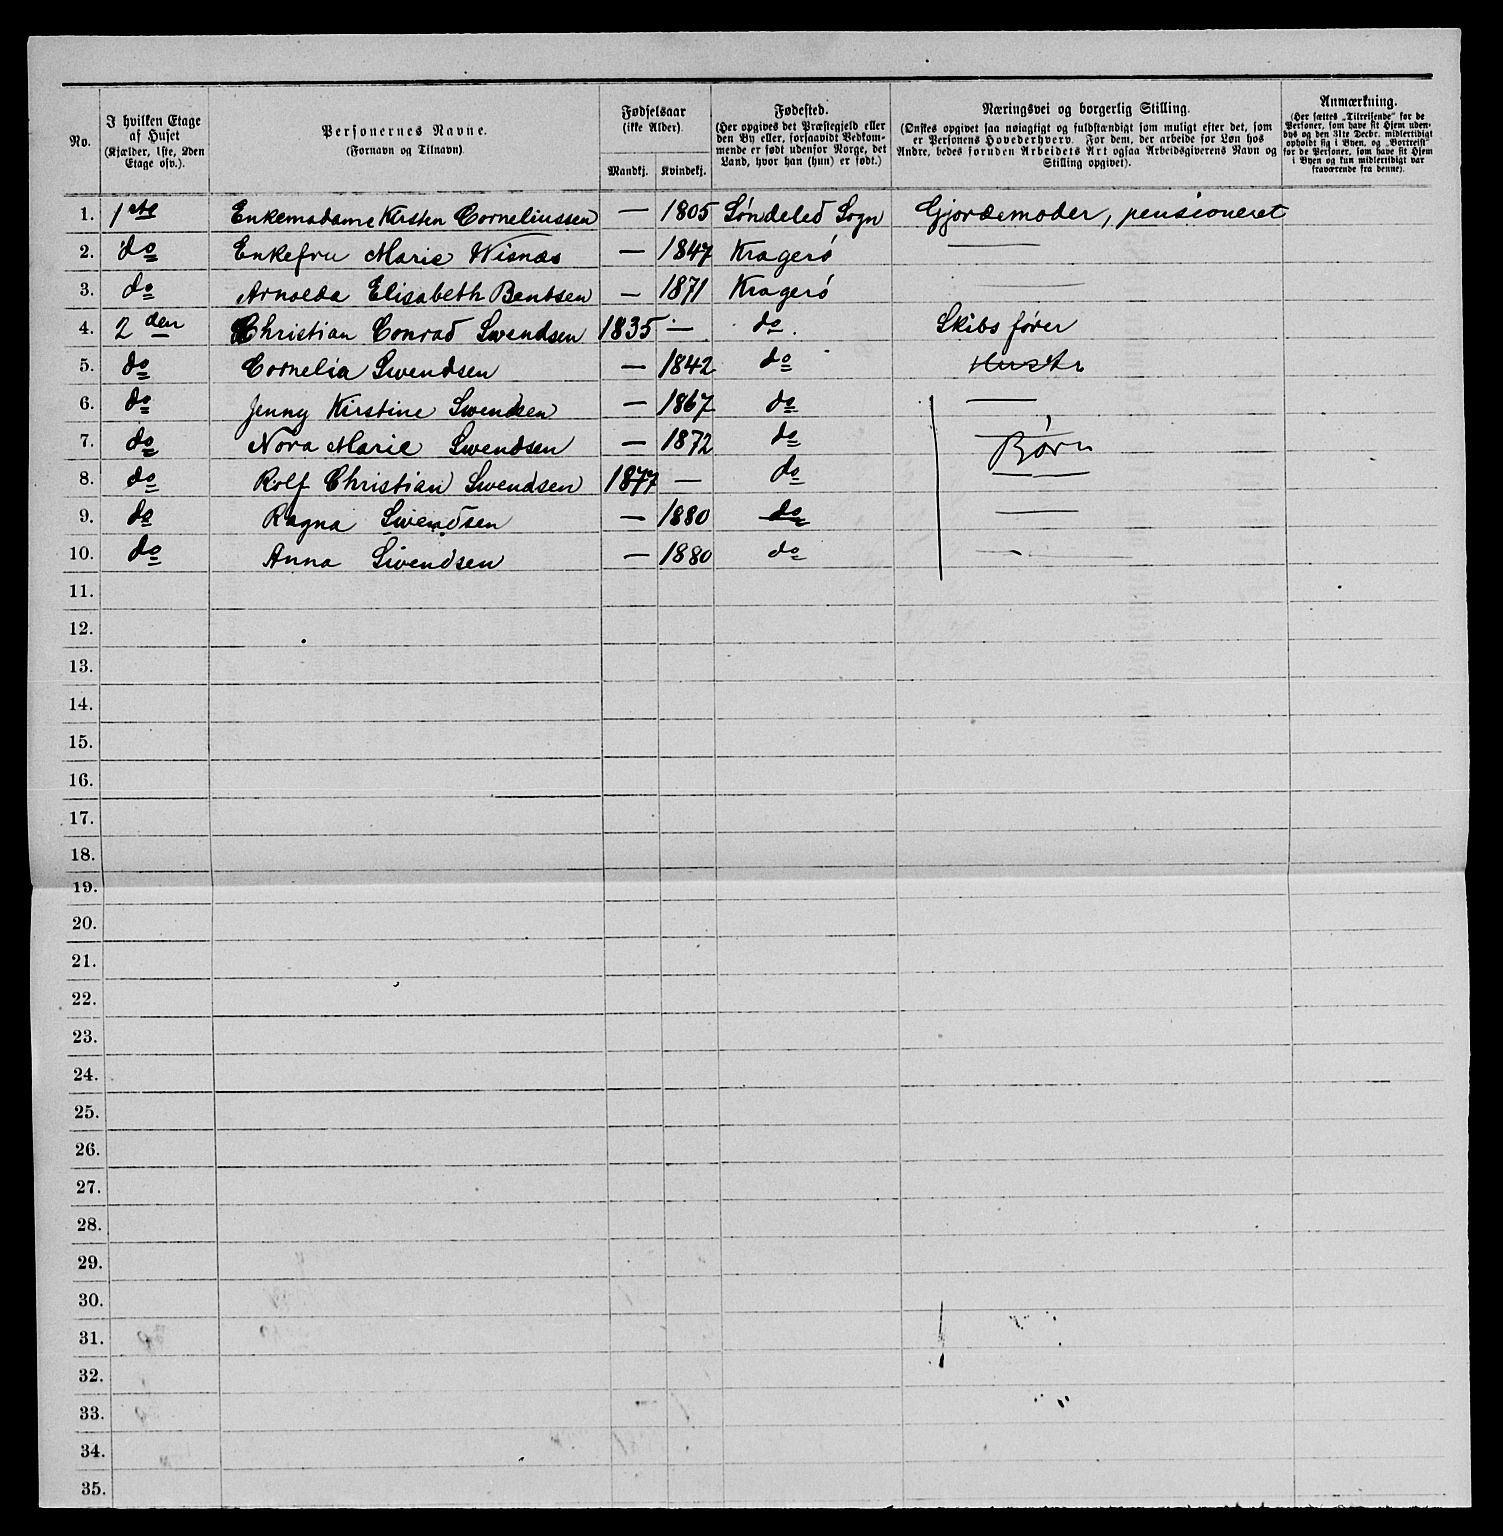 No.
I hvilken Etage af Huset
(Kjælder, 1ste, 2den Etage osv.).
Personernes Navne.
(Fornavn og Tilnavn)
Fødselsaar
(ikke Alder).
Mandkj. Kvindekj.
Fødested.
(Her opgives det Præstegjeld eller den By eller, forsaavidt Vedkommende er født udenfor Norge, det Land, hvor han (hun) er født.)
Næringsvei og borgerlig Stilling.
(Ønskes opgivet saa nøiagtigt og fuldstændigt som muligt efter det, som er Personens Hovederhverv. For dem, der arbeide for Løn hos Andre, bedes foruden Arbeidets Art ogsaa Arbeidsgiverens Navn og Stilling opgivet).
Anmærkning.
(Her sættes „Tilreisende" for de Personer, som have sit Hjem udenbys og den 31te Decbr. midlertidigt opholdt sig i Byen, og „Bortreist" for de Personer, som have sit Hjem i Byen og kun midlertidigt var fraværende fra denne).
1. 1ste Enkemadame Kirsten Corneliussen — 1805 Søndeled Sogn Gjordemoder, pensioneret
2. do Enkefru Marie Wisnæs — 1847 Kragerø —
3. do Arnolda Elisabeth Bentsen — 1871 Kragerø —
4. 2den Christian Conrad Swendsen 1835 — do Skibsfører
5. do Cornelia Swendsen — 1842 do Hustr
6. do Jenny Kirstine Swendsen — 1867 do —
7. do Nora Marie Swendsen — 1872 do Børn
8. do Rolf Christian Swendsen 1877 — do —
9. do Ragna Swendsen — 1880 do —
10. do Anna Swendsen — 1880 do —
11.
12.
13.
14.
15.
16.
17.
18.
19.
20.
21.
22.
23.
24.
25.
26.
27.
28.
29.
30.
31.
32.
33.
34.
35.